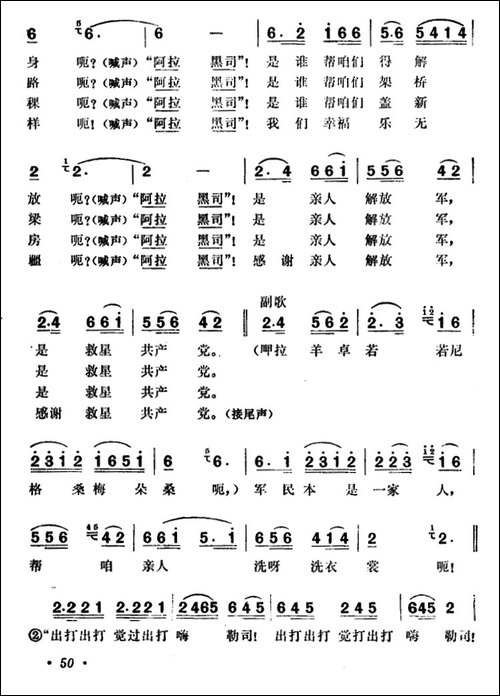 6 6. 6 — 6.2 1 6 6 5·6 5 4 1 4
身 呃？(喊声)“阿拉 黑司”！是谁 帮咱们 得 解
路 呃？(喊声)“阿拉 黑司”！是谁 帮咱们 架 桥
稞 呃？(喊声)“阿拉 黑司”！是谁 帮咱们 盖 新
样 呃！(喊声)“阿拉 黑司”！我们 幸福 乐 无
2 2. 2 — 2.4 6 6 1 5 5 6 4 2
放 呃？(喊声)“阿拉 黑司”！是 亲人 解放 军，
梁 呃？(喊声)“阿拉 黑司”！是 亲人 解放 军，
房 呃？(喊声)“阿拉 黑司”！是 亲人 解放 军，
疆 呃？(喊声)“阿拉 黑司”！感谢 亲人 解放 军，
副歌
2.4 6 6 1 5 5 6 4 2 2.4 5 6 2 2.3 1 6
是 救星 共产 党。 (呷拉 羊卓若 若尼
是 救星 共产 党。
是 救星 共产 党。
感谢 救星 共产 党。(接尾声)
2 3 1 2 1 6 5 1 6 6. 6.1 2 3 1 2 2 2 3 1 6
格 桑梅 朵桑 呃，) 军 民本 是一家 人，
5 5 6 4 2 6 6 1 5.1 6 5 6 4 1 4 2 2.
帮 咱 亲人 洗呀 洗衣 裳 呃！
2.2 2 1 2.2 2 1 2 4 6 5 6 4 5 6 4 5 6 4 5 2.2 2 1 6 4 5 2
②“出打出打 觉过出打 嗨 勒司！ 出打出打 觉打出打 嗨 勒司！
· 50 ·